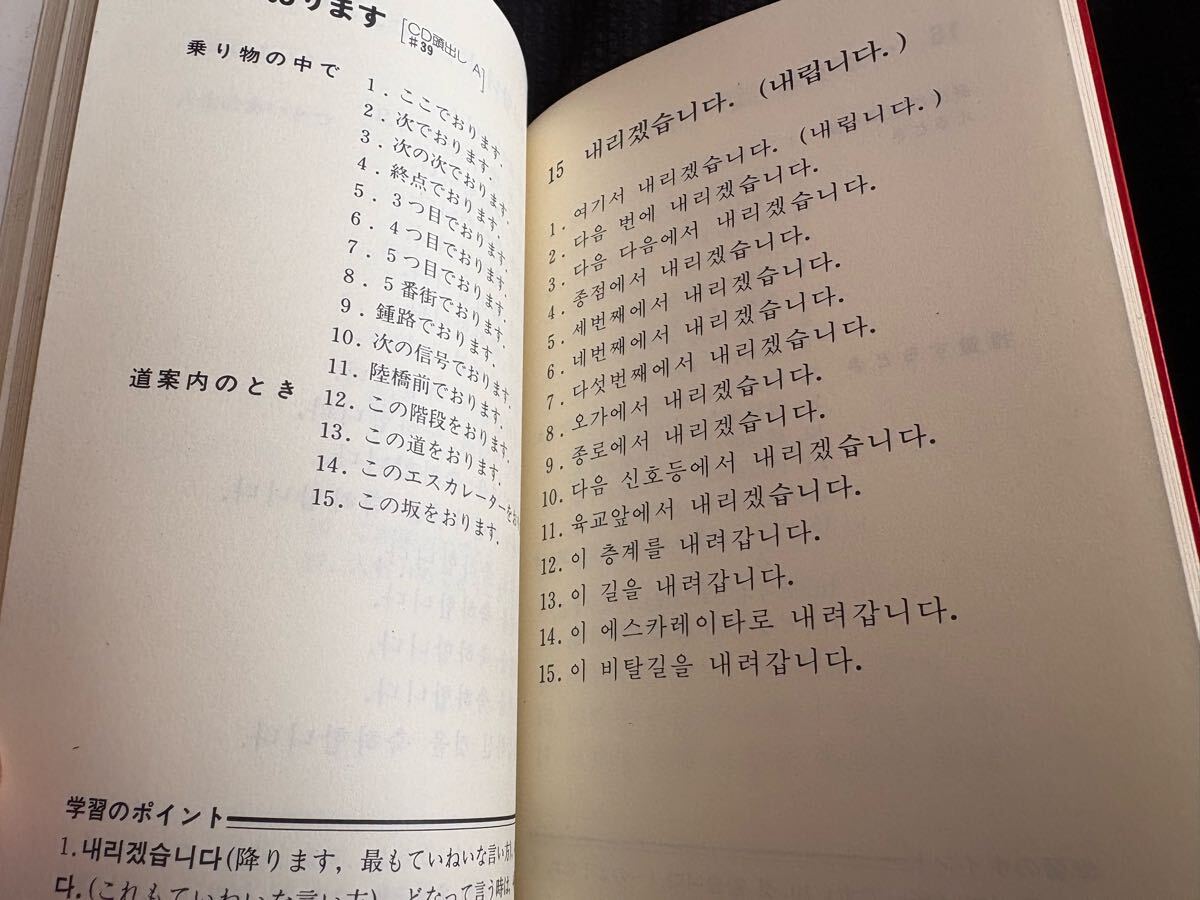 おります
[CD頭出し A]
#39
乗り物の中で
1. ここでおります.
2. 次でおります.
3. 次の次でおります.
4. 終点でおります.
5. 3つ目でおります.
6. 4つ目でおります.
7. 5つ目でおります.
8. 5番街でおります.
9. 鍾路でおります.
10. 次の信号でおります.
道案内のとき
11. 陸橋前でおります.
12. この階段をおります.
13. この道をおります.
14. このエスカレーターをお
15. この坂をおります.
学習のポイント
1. 내리겠습니다(降ります, 最もていねいな言い方,
다.(これもていねいな言い方). どなって言う時は,
15 내리겠습니다. (내립니다.)
1. 여기서 내리겠습니다. (내립니다.)
2. 다음 번에 내리겠습니다.
3. 다음 다음에서 내리겠습니다.
4. 종점에서 내리겠습니다.
5. 세번째에서 내리겠습니다.
6. 네번째에서 내리겠습니다.
7. 다섯번째에서 내리겠습니다.
8. 오가에서 내리겠습니다.
9. 종로에서 내리겠습니다.
10. 다음 신호등에서 내리겠습니다.
11. 육교앞에서 내리겠습니다.
12. 이 층계를 내려갑니다.
13. 이 길을 내려갑니다.
14. 이 에스카레이타로 내려갑니다.
15. 이 비탈길을 내려갑니다.